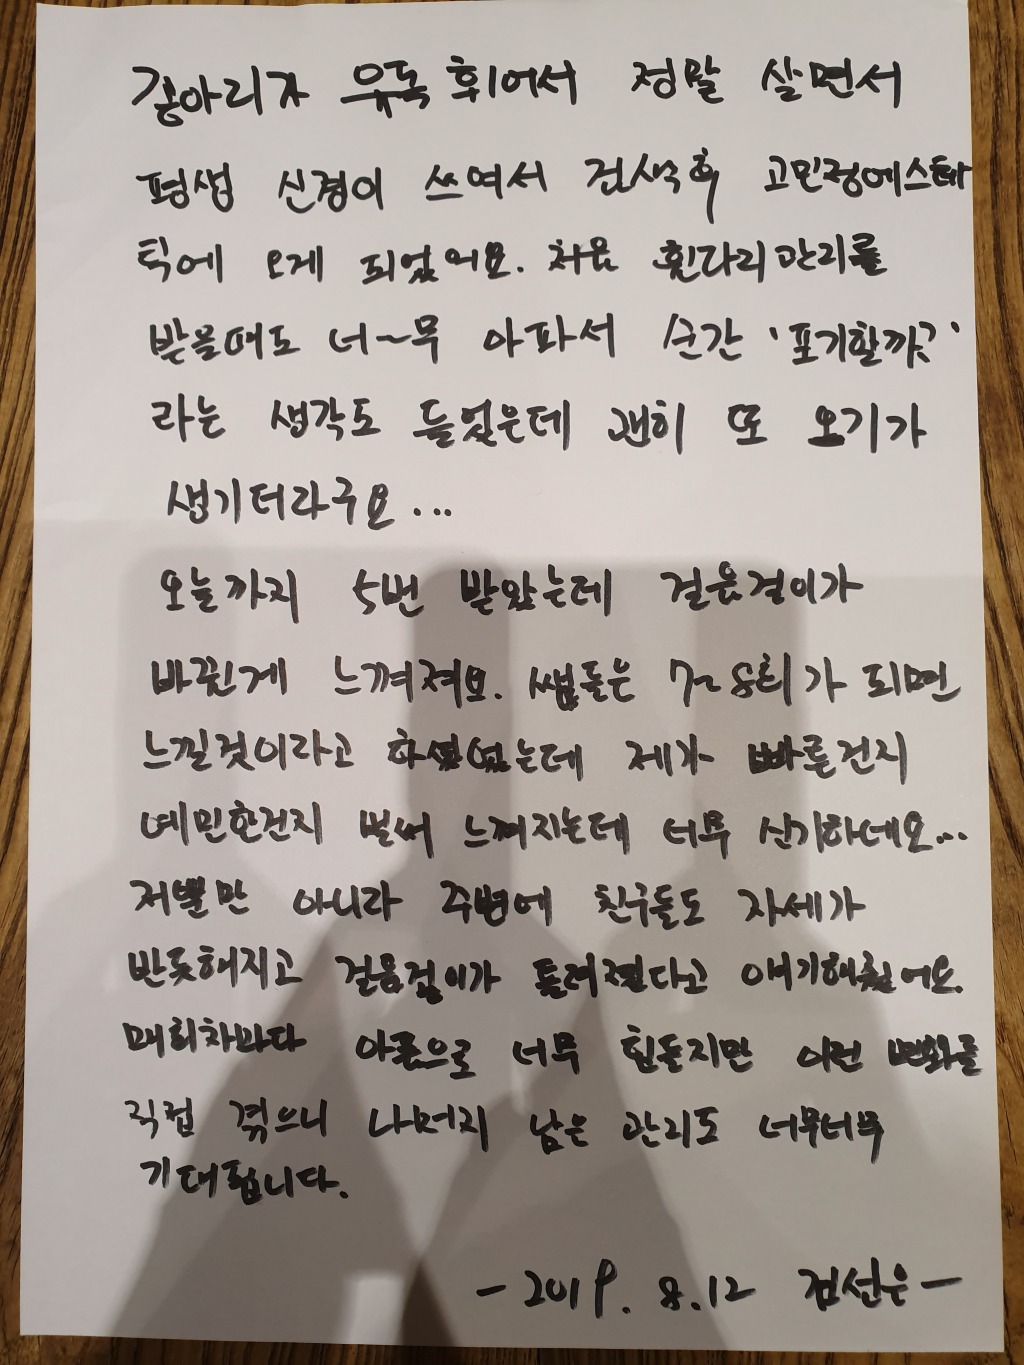 종아리가 유독 휘어서 정말 살면서
평생 신경이 쓰여서 검색후 고민정에스테
틱에 오게 되었어요. 처음 휜다리관리를
받을때도 너~무 아파서 순간 '포기할까?'
라는 생각도 들었는데 괜히 또 오기가
생기더라구요...
오늘까지 5번 받았는데 걸음걸이가
바뀐게 느껴져요. 쌤들은 7~8회가 되면
느낄것이라고 하셨었는데 제가 빠른건지
예민한건지 벌써 느껴지는데 너무 신기하네요...
저뿐만 아니라 주변에 친구들도 자세가
반듯해지고 걸음걸이가 달라졌다고 얘기해줬어요.
매회차마다 아픔으로 너무 힘들지만 이런 변화를
직접 겪으니 나머지 남은 관리도 너무너무
기대됩니다.
-2019. 8.12 김선은-